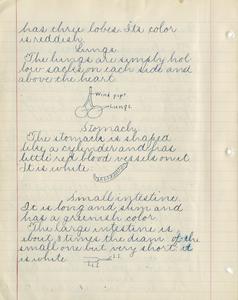 has three lobes. Its color
is reddish.
Lungs
The lungs are simply hol
low sacks on each side and
above the heart
Wind pipe
Lungs.
Stomach
The stomach is shaped
like a cylinder and has
little red blood vessels on it
It is white.
Small intestine.
It is long and slim and
has a greenish color.
The large intestine is
about 3 times the diam of the
small one but very short it
is white